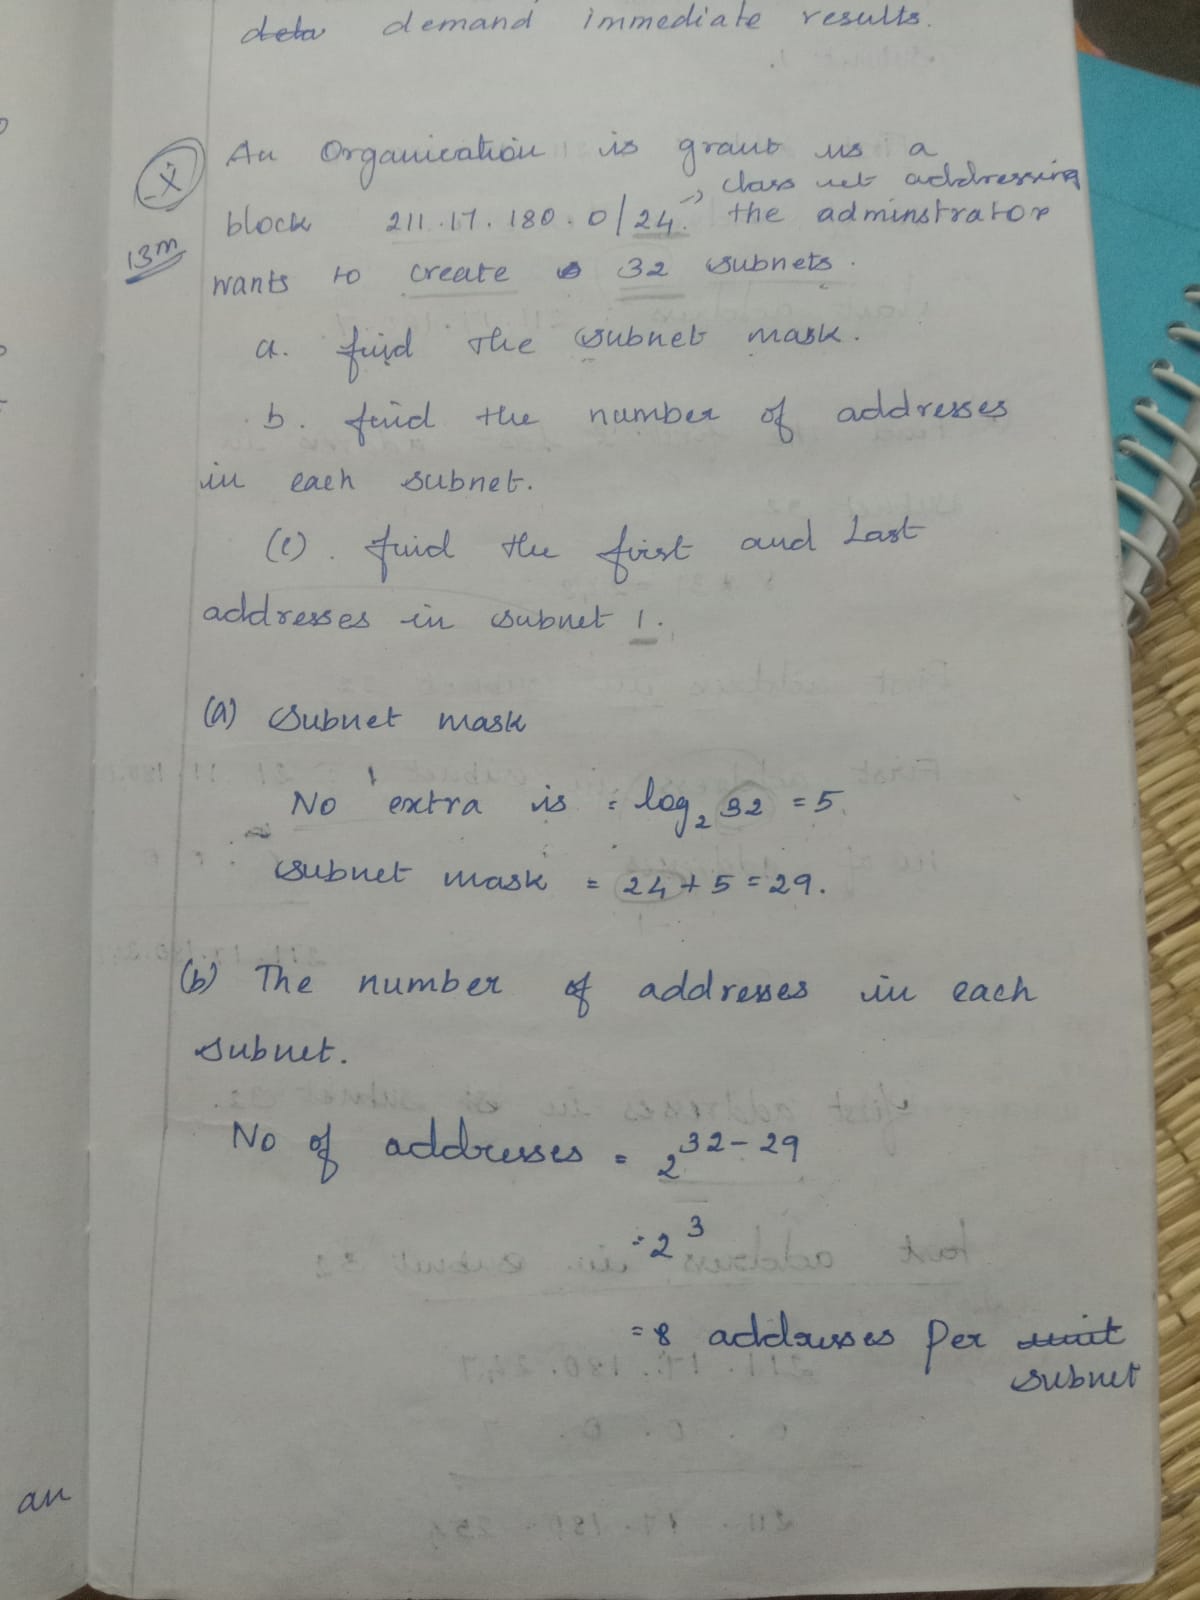 deta demand immediate results.
An Organication is grant us a
class net addressing
block 211.17.180.0/24. the adminstrator
13m
wants to create 32 subnets.
a. find the subnet mask.
b. find the number of addresses
in each subnet.
(c). find the first and Last
addresses in subnet 1.
(a) Subnet mask
No extra is = log₂ 32 = 5.
subnet mask = 24 + 5 = 29.
(b) The number of addresses in each
subnet.
No of addresses = 2^32-29
= 2^3
= 8 addresses per unit
subnet
an